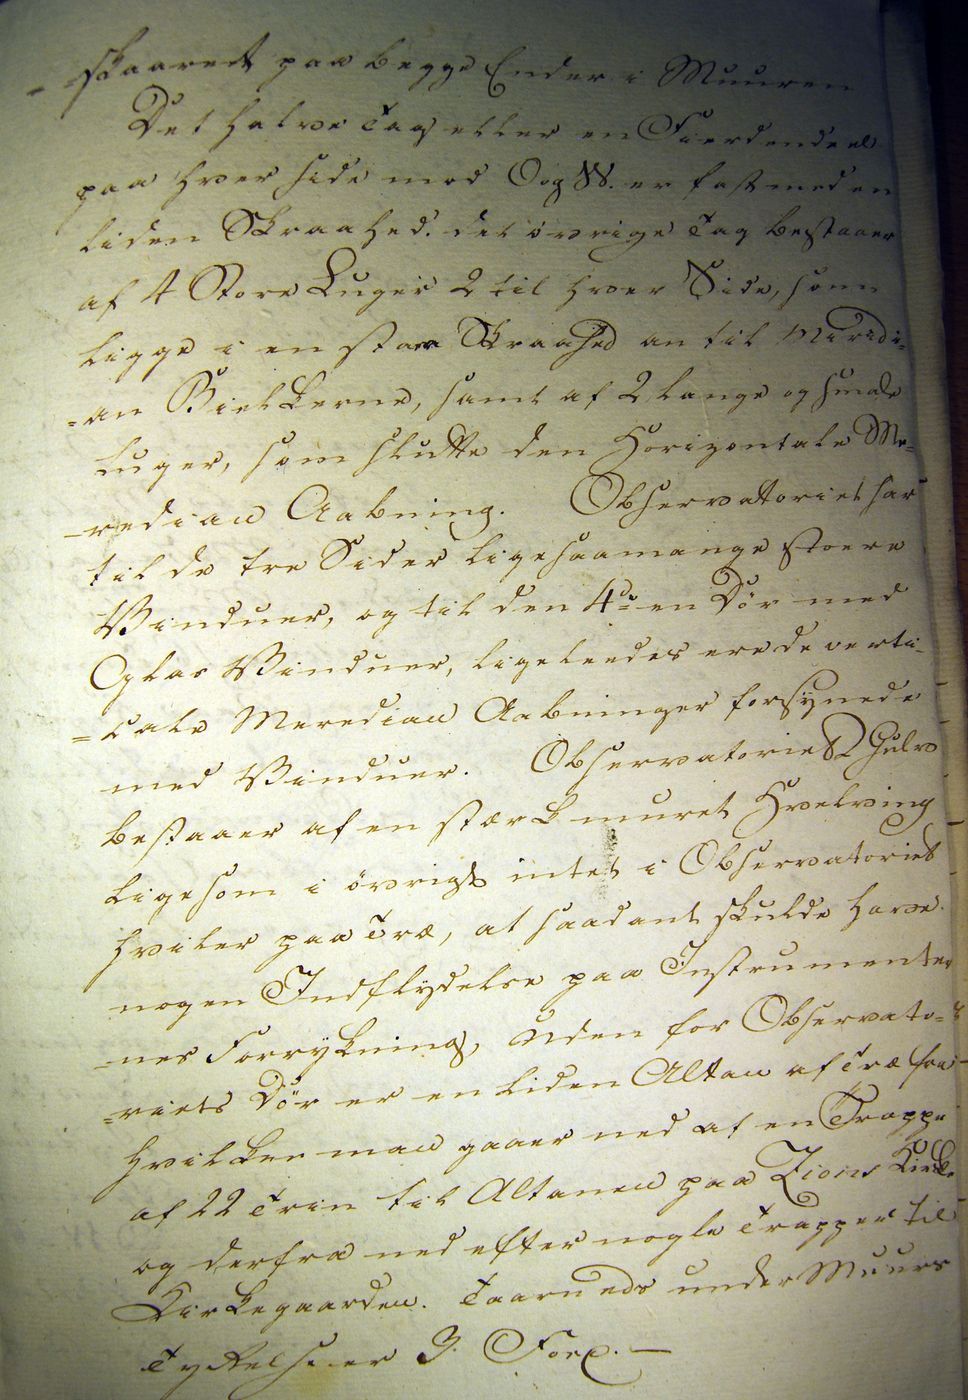 = skaaret paa begge Ender i Muuren
Det halve Tag eller en Fierdendeel
paa hver side mod O og W. er fast med en
liden Skraahed. det övrige Tag bestaaer
af 4 Store Luger 2 til hver Side, som
ligge i en Skraahed an til Meridi=
=an Bielkerne, samt af 2 lange og smale
luger, som slutte den Horizontale Me=
=redian Aabning. Observatoriet har
til de tre Sider ligesaamange stoere
Vinduer, og til den 4de en Dör med
Glas Vinduer, ligeleedes ere de verti=
=cale Meredian Aabninger forsynede
med Vinduer. Observatoriets Gulv
bestaaer af en stærk muret Hvelving
ligesom i övrigt intet i Observatoriet
hviler paa Træ, at saadant skulde have
nogen Indflydelse paa Instrumenter
=nes Forrykning, Uden for Observato=
=riets Dör er en liden Altan af Træ fra
hvilken man gaaer ned af en Trappe
af 22 Trin til Altanen paa Zions Kirke
og derfra ned efter nogle Trapper til
Kirkegaarden. Taarnets under Muurs
Tykkelse er 3.